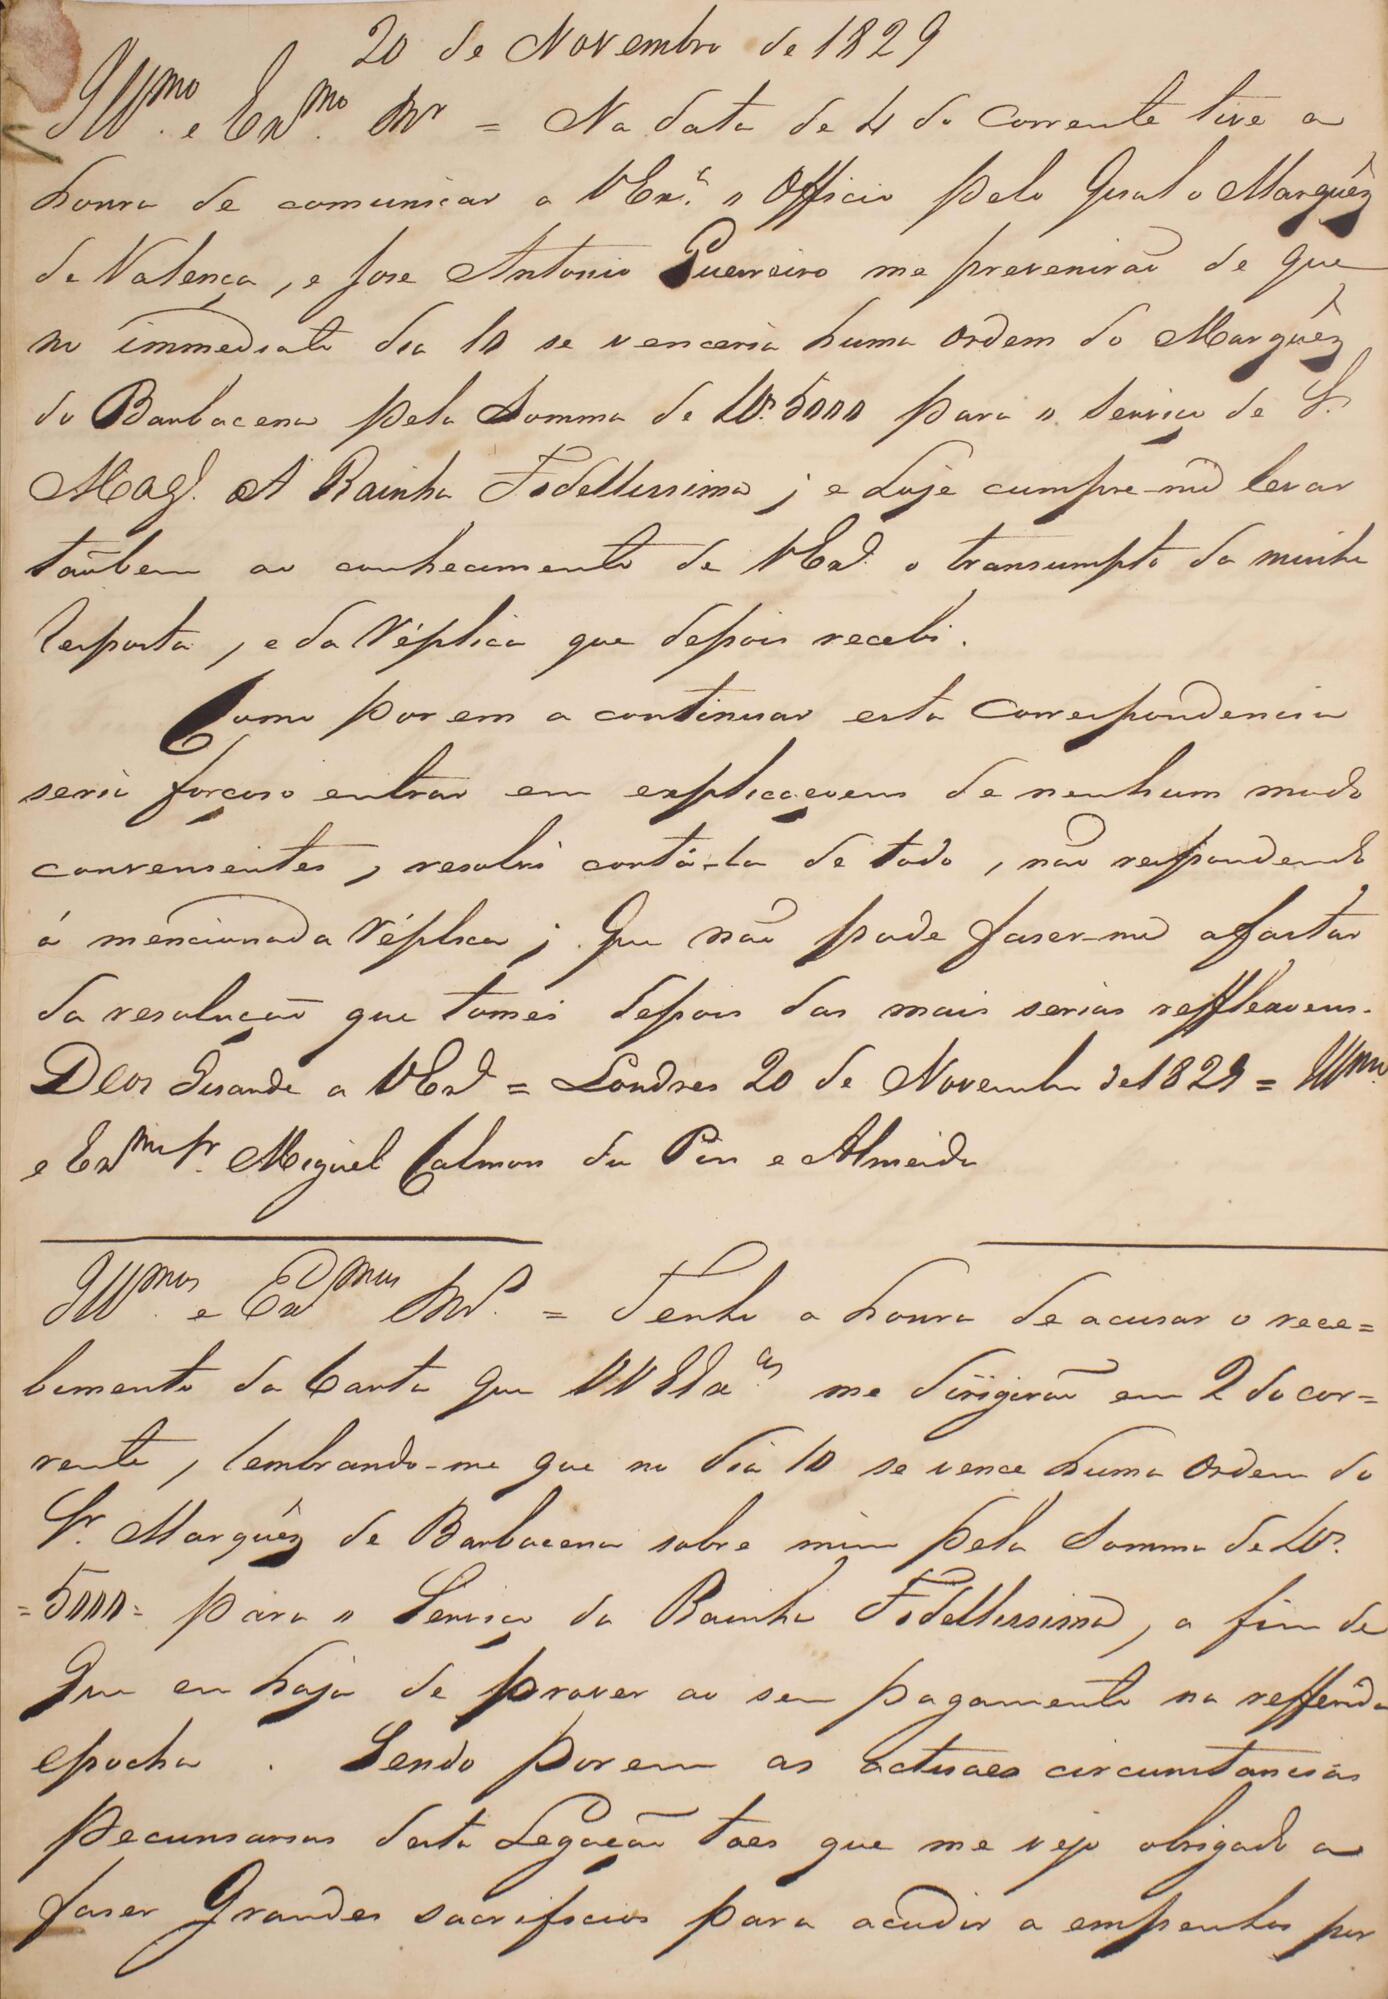 20 de Novembro de 1829
Illmo. e Exmo. Snr = Na data de 4 do corrente tive a
honra de comunicar a VExa. o Officio pelo Qual o Marquêz
de Valença, e Jose Antonio Guerreiro me prevenirão de que
no immediato dia 10 se venceria huma ordem do Marquêz
de Barbacena pela Somma de Lbs. 5000 para o Serviço de S.
Magd. A Rainha Fidellissima; e hoje cumpre-me levar
taõbem ao conhecimento de VExa. o transumpto da minha
resposta, e da Réplica que depois recebi.
Como porem a continuar esta Correspondencia
seria forçoso entrar em explicaçoens de nenhum modo
convenientes, resolvi cortá-la de todo, não respondendo
á mencionada réplica; Que não pode faser-me afastar
da resolução que tomei depois das mais serias refflexoens.
Deos Guarde a VExa = Londres 20 de Novembro de 1829 = Illmo.
e Exmo Sr. Miguel Calmon du Pin e Almeida
Illmos. e Exmos Snrs. = Tenho a honra de acusar o rece=
bimento da Carta que VVEExas me dirigirão em 2 do cor=
rente, lembrando-me que no dia 10 se vence huma Ordem do
Sr. Marquêz de Barbacena sobre mim pela Somma de Lbs.
=5000= para o Serviço da Rainha Fidellissima, a fim de
Que eu haja de prover ao seu pagamento na refferida
epocha. Sendo porem as actuaes circumstancias
Pecuniarias desta Legação taes que me vejo obrigado a
faser Grandes sacrificios para acudir a empenhos por